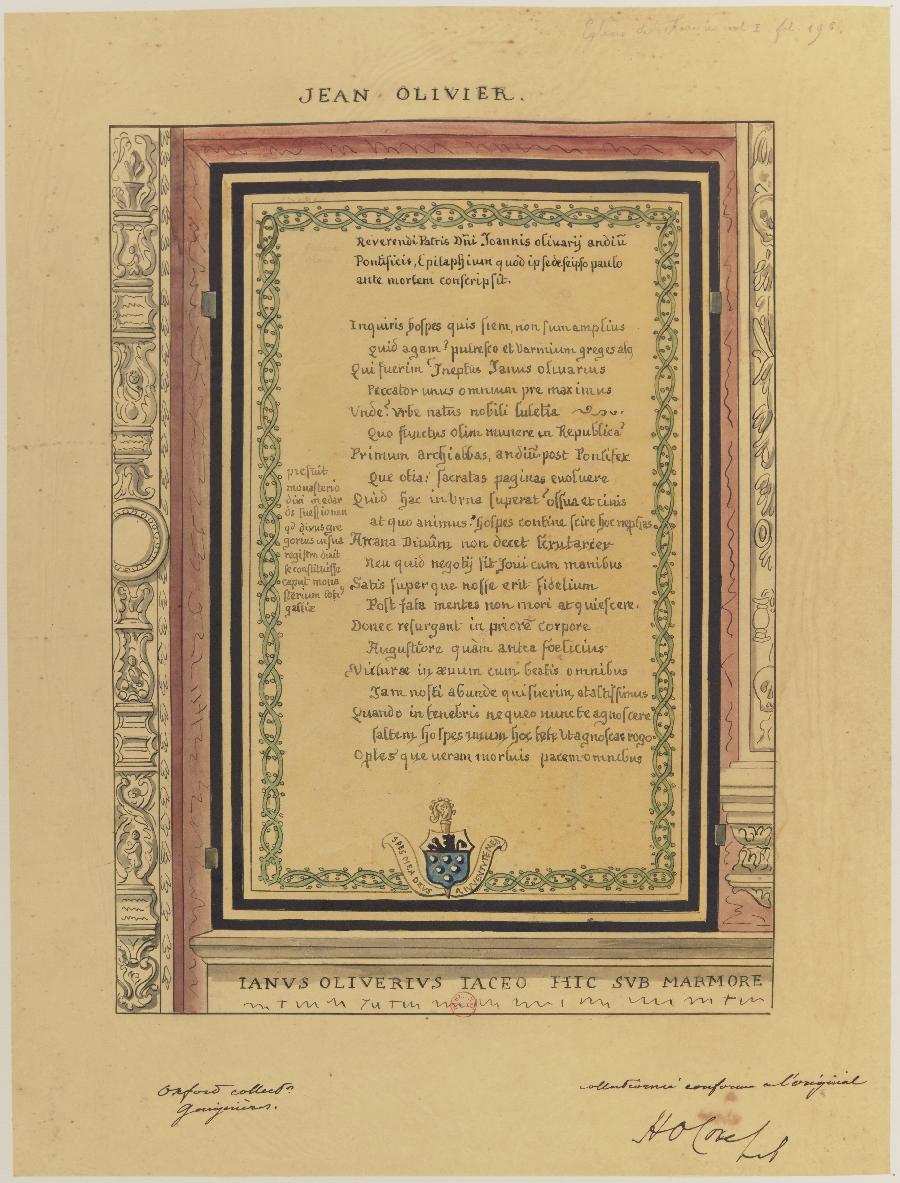 Eglises de France vol I fol. 19
JEAN OLIVIER.
Reverendi Patris Dñi Joannis olivarij andiũ
Pontificis, Epitaphium quod ipse de seipso paulo
ante mortem conscripsit.
Inquiris hospes quis siem, non sum amplius
quid agam? putresco et varmium greges alo
Qui fuerim? Ineptus Janus olivarius
Peccator unus omnium pre maximus
Vnde? Vrbe natus nobili lutetia
Quo functus olim munere in Republica?
Primum archiabbas, andiũ post Pontifex
Que otia? sacratas paginas evoluere
Quid hac in Vrna superat? ossua et cinis
at quo animus? hospes contine scire hoc nephas
Arcana Divûm non decet scrutarier
Neu quid negotij sit Joui cum manibus
Satis superque nosse erit fidelium
Post fata mentes non mori atquiescere.
Donec resurgant in priorẽ corpore
Augustiore quàm antea foelicius
Victuræ in æuum cum beatis omnibus
Jam nosti abunde qui fuerim, at altissimus
Quando in tenebris nequeo nunc te agnoscere
saltem hospes unum hoc Vt agnoscas rogo
Optes que ueram mortuis pacem omnibus
prefuit
monasterio
divi medar
di suessionen
qd divus gre
gorius in sua
registro dixit
se constituisse
caput mona
sterium totiꝰ
galliæ
SPES MEA DEVS A IVVENTVTE
IANVS OLIVERIVS IACEO HIC SVB MARMORE
Oxford collectn
Gaignières.
collationné conforme a l'original